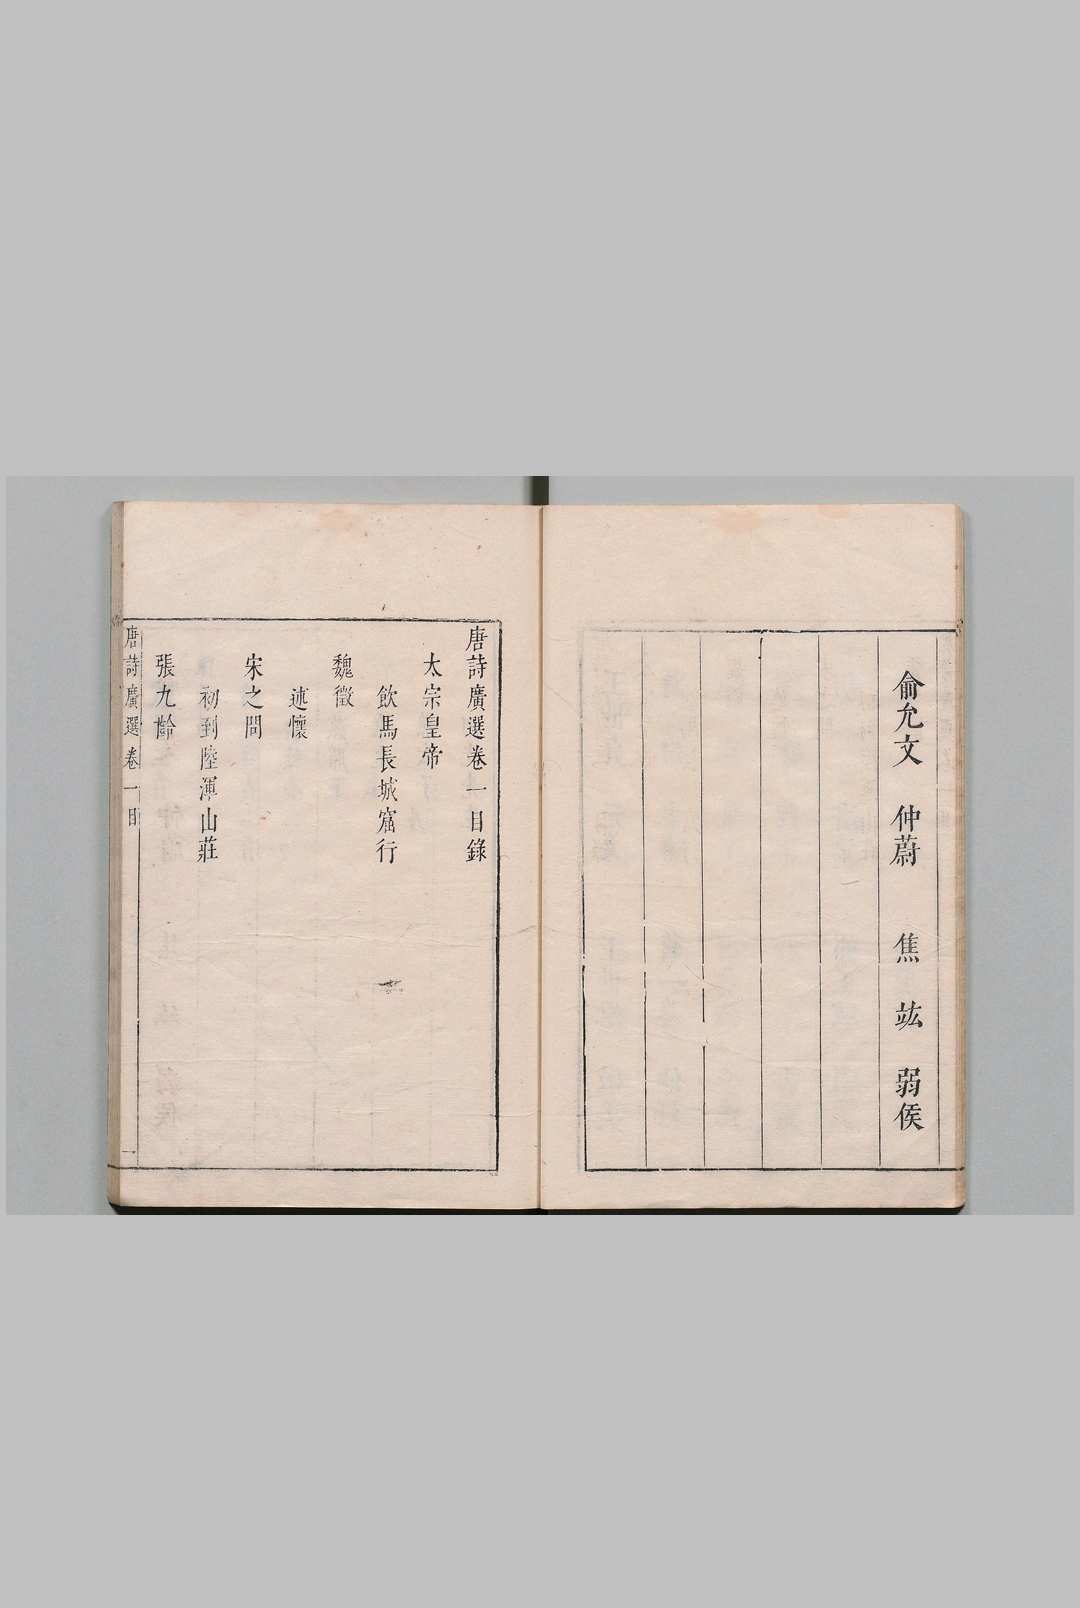 俞允文 仲蔚 焦竑 弱侯
唐詩廣選卷一目錄
太宗皇帝
飲馬長城窟行
魏徵
述懷
宋之問
初到陸渾山莊
張九齡
唐詩廣選 卷一目 一